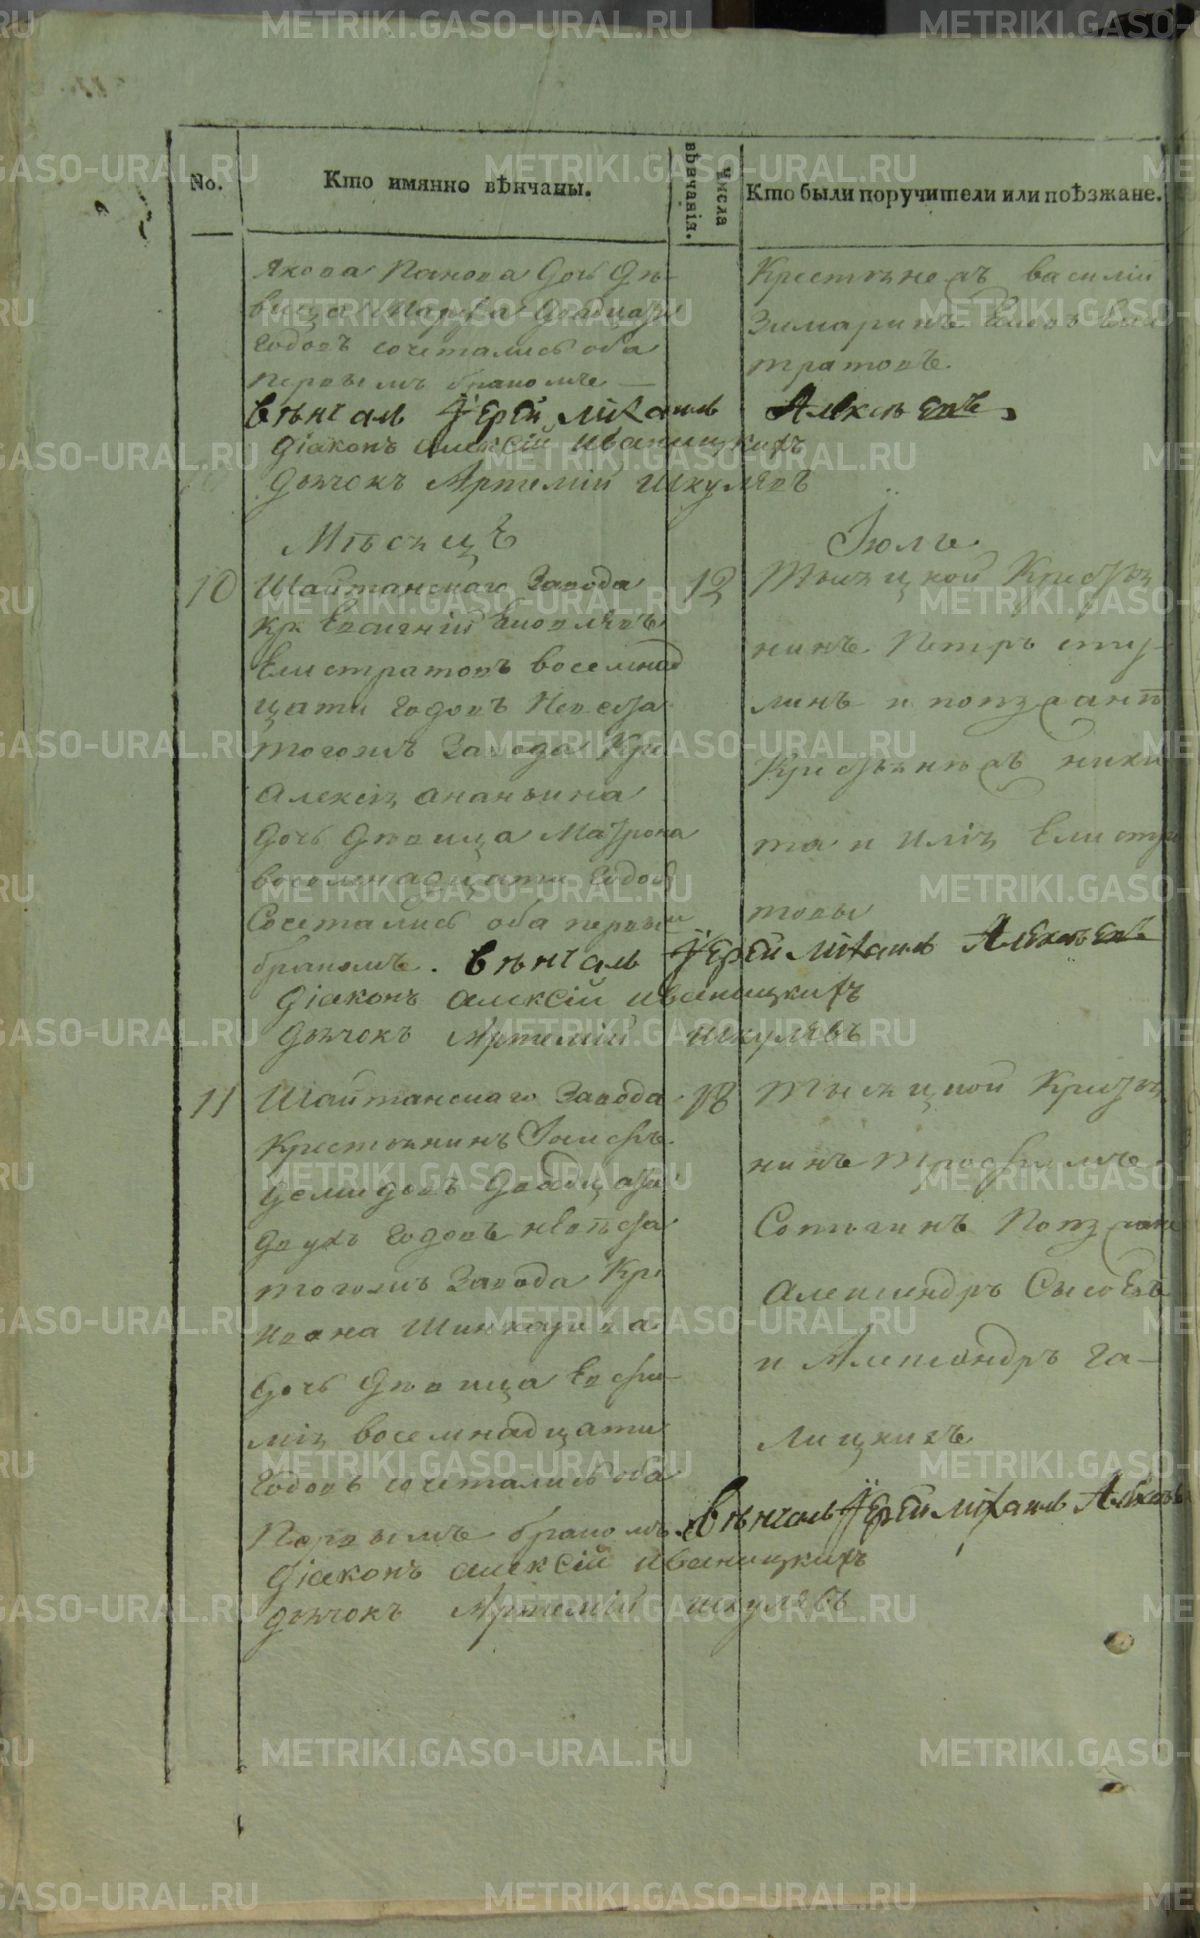 No.
Кто имянно вѣнчаны.
числа вѣнчанія.
Кто были поручители или поѣзжане.
Якова Панова дочь дѣ-
вица Марѳа двадцати
годовъ сочетались оба
первымъ бракомъ —
вѣнчалъ Іерей Михаилъ Алексѣевъ
Діаконъ Алексій Иваницкихъ
Дьячокъ Артемій Шкулявъ
Крестьяне василій
Зимаринъ Ели
тратовъ
Мѣсяцъ Іюль
10
Шайтанскаго Завода
кр. Евсигній
Елистратовъ восемнад
цати годовъ Невѣста
тогожъ Завода Кр.
Алексія Ананьина
дочь дѣвица Матрона
восемнадцати годовъ
Сочетались оба первы
бракомъ. вѣнчалъ Іерей Михаилъ Алексѣевъ
Діаконъ Алексій Иваницкихъ
Дьячокъ Артемій Шкулявъ
12
Тысяцкой Крестья
нинъ Петръ
линъ и поѣзжанѣ
Крестьянѣ ники
та и Илія Елистра
товы
11
Шайтанскаго Завода
Крестьянинъ Іосифъ
Демидовъ двадцати
двухъ годовъ невѣста
тогожъ Завода Кр.
Ивана Шинкарева
дочь дѣвица Евфи-
мія восемнадцати
годовъ сочетались оба
Первымъ бракомъ вѣнчалъ Іерей Михаилъ Алексѣевъ
Діаконъ Алексій Иваницкихъ
Дьячокъ Артемій Шкулявъ
18
Тысяцкой Крестья
нинъ Трофимъ
Сопыгинъ Поѣзжане
Александръ Сысоевъ
и Александръ Га-
лицкихъ
METRIKI.GASO-URAL.RU